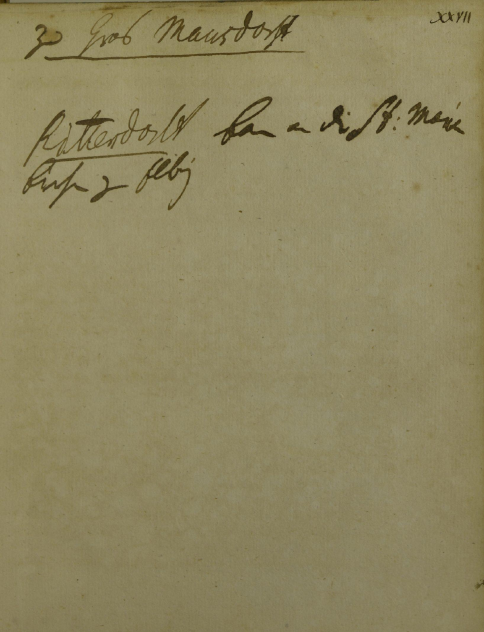 XXVII
zu Gros Mausdorff
Rütterdorff kam an die St: Marie
kirch zu Elbing